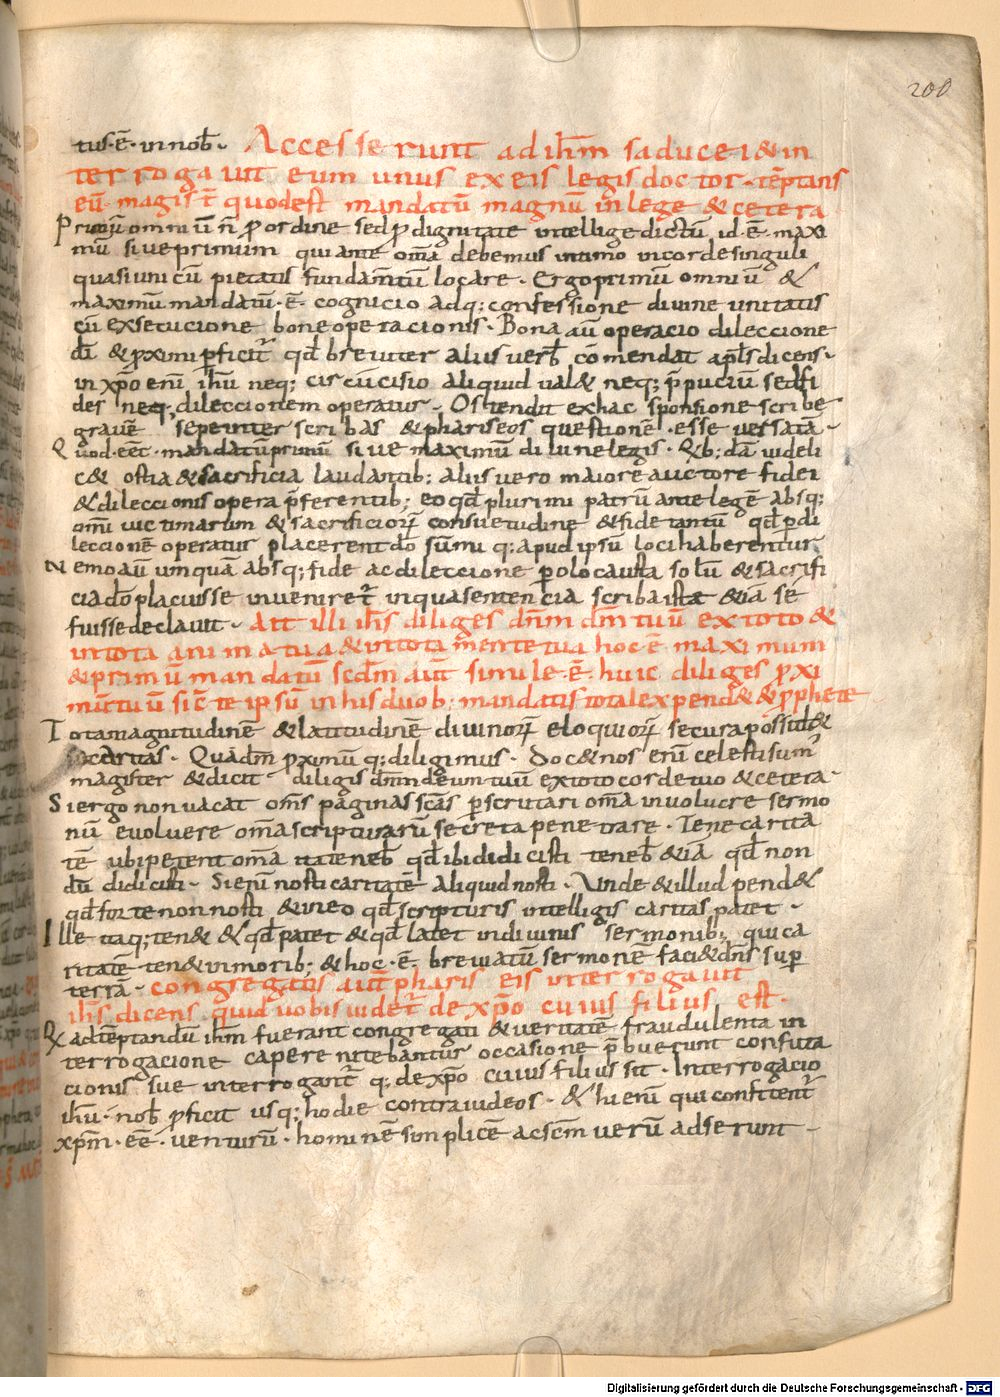 200
tus · ē · in nob̄ · Accesserunt ad ih̄m saducei & in
terrogavit eum unus ex eis legis doctor · tēptans
eū · magist̄ quodest mandatū magnū in lege & cetera
Primū omniū n̄ p ordine sed p dignitate intellige dictū id · ē · maxi
mū sive primum qui ante om̄a debemus intimo in corde singuli
quasi unicū pietatis fundam̄tum locare · Ergo primū omniū &
maximū mandatū · ē · cognicio adq; confessione divine unitatis
cū exsecucione bone operacionis · Bona aū operacio dileccione
dī & pximi pficit̄ qd̄ breviter alius verb̄ cōmendat apl̄s dicens ·
in xp̄o enī ih̄u neq; circūcisio aliquid val& neq; p̄puciū sed fi
des neq; dileccionem operatur · Ostendit ex hac sponsione scribe
gravē sepe inter scribas & phariseos questionē · esse versatā ·
Quod · eēt · mandatū primū sive maximū divine legis · Qb; dā videli
c& ostia & sacrificia laudantib; alius vero maiorē auctore fidei
& dileccionis opera p̄ferentib; eo qd̄ plurimi patrū ante legē absq;
omni victimarum & sacrificiorꝝ consuetudine & fide tantū qd̄ p di
leccionē operatur placerent dō sūmi q; apud ipsū loci haberentur
Nemo aū umquā absq; fide ac dileccione p olocausta solū & sacrifi
cia dō placuisse inveniret̄ in qua sentencia scriba iste &iā sē
fuisse declavit · Ait illi ih̄s diliges dn̄m dm̄ tuū ex toto &
in tota anima tua & in tota mente tua hoc ē maximum
& primū mandatū scd̄m aūt simile · ē · huic diliges pxi
mū tuū sic̄ te ipsū in his duob; mandatis tota lex pend& & pphete
Tota magnitudinē & latitudinē divinorꝝ eloquiorꝝ secura possid&
caritas · Quādm̄ pximū q; diligimus · Doc& nos enī celestis um̄
magister & dicit · diligis dn̄m deum tuū ex toto corde tuo & cetera ·
Si ergo non vacat om̄s paginas sc̄as pscrutari om̄a involucre sermo
nū evolvere om̄a scripturarū secreta penetrare · Tene carita
tē ubi petent om̄a ita teneb̄ qd̄ ibi didicisti teneb̄ &iā qd̄ non
dū didicisti · Si enī nosti caritatē aliquid nosti · Unde & illud pend&
qd̄ forte non nosti & in eo qd̄ scripturis intelligis caritas patet ·
Ille itaq; ten& & qd̄ patet & qd̄ latet in divinis sermonib; qui ca
ritatē ten& in morib; & hoc · ē · breviatū sermonē faci& dn̄s sup
terrā · congregatis aūt phariseis interrogavit
ih̄s dicens quid vobis videt̄ de xp̄o cuius filius est ·
Qx ad tēptandū ih̄m fuerant congregati & veritatē fraudulenta in
terrogacione capere nitebantur occasione p̄buerunt confuta
cionis sue interrogant̄ q; de xp̄o cuius filius sit · Interrogacio
ih̄u · nob̄ pficit usq; hodie contra iudeos · & hi enī qui confitent̄
xp̄m · eē · venturū · hominē simplicē ac sc̄m verū adserunt ·
Digitalisierung gefördert durch die Deutsche Forschungsgemeinschaft - DFG